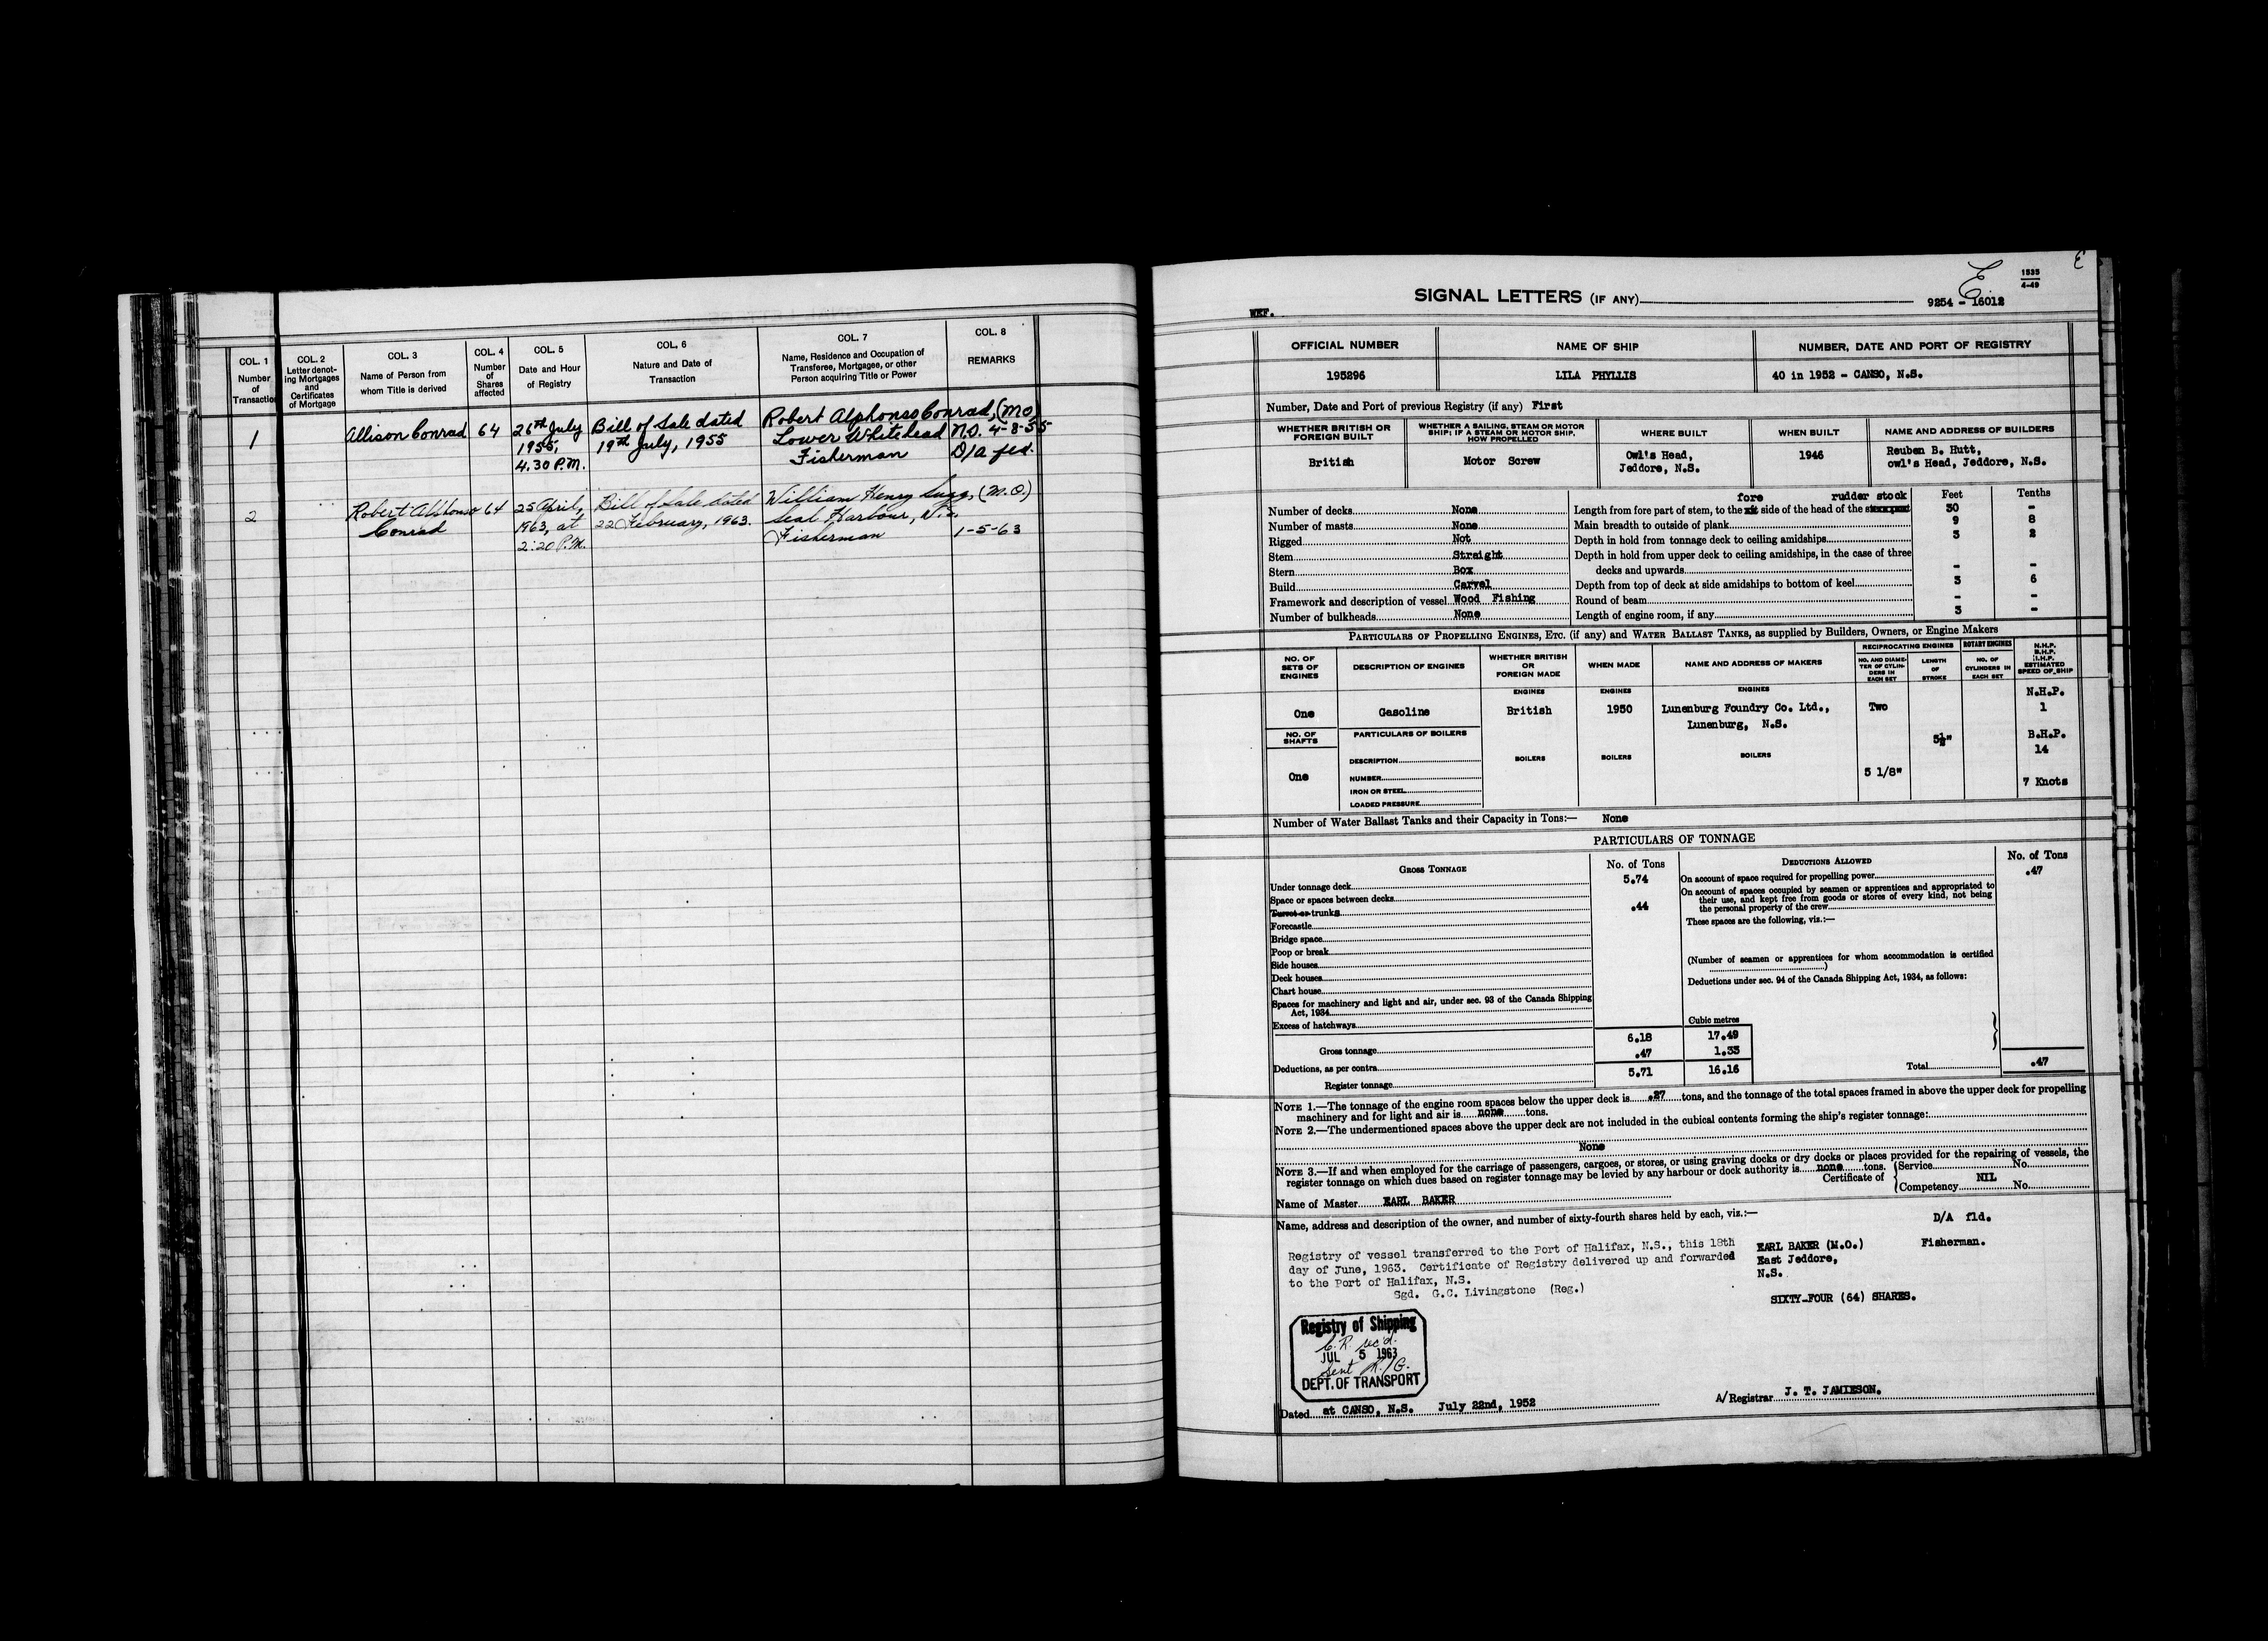 COL. 1
Number
of
Transaction
COL. 2
Letter denot-
ing Mortgages
and
Certificates
of Mortgage
COL. 3
Name of Person from
whom Title is derived
COL. 4
Number
of
Shares
affected
COL. 5
Date and Hour
of Registry
COL. 6
Nature and Date of
Transaction
COL. 7
Name, Residence and Occupation of
Transferee, Mortgagee, or other
Person acquiring Title or Power
COL. 8
REMARKS
1
Allison Conrad
64
26th July
1955,
4.30 P.M.
Bill of Sale dated
19th July, 1955
Robert Alphonso Conrad, (MO)
Lower Whitehead
Fisherman
N.S. 4-8-55
D/A fld.
2
Robert Alphonso
Conrad
64
25 April,
1963, at
2:20 P.M.
Bill of Sale dated
22 February, 1963.
William Henry Sugg, (M.O.)
Seal Harbour, N.S.
Fisherman
1-5-63
E
E
1535
4-49
SIGNAL LETTERS (IF ANY)
9254 - 16012
WEF.
OFFICIAL NUMBER
NAME OF SHIP
NUMBER, DATE AND PORT OF REGISTRY
195296
LILA PHYLLIS
40 in 1952 - CANSO, N.S.
Number, Date and Port of previous Registry (if any) First
WHETHER BRITISH OR
FOREIGN BUILT
WHETHER A SAILING, STEAM OR MOTOR
SHIP; IF A STEAM OR MOTOR SHIP,
HOW PROPELLED
WHERE BUILT
WHEN BUILT
NAME AND ADDRESS OF BUILDERS
British
Motor Screw
Owl's Head,
Jeddore, N.S.
1946
Reuben B. Hutt,
owl's Head, Jeddore, N.S.
Number of decks None
Number of masts None
Rigged Not
Stem Straight
Stern Box
Build Carvel
Framework and description of vessel Wood Fishing
Number of bulkheads None
fore rudder stock
Feet Tenths
Length from fore part of stem, to the side of the head of the 30 -
Main breadth to outside of plank 9 8
Depth in hold from tonnage deck to ceiling amidships 3 2
Depth in hold from upper deck to ceiling amidships, in the case of three
decks and upwards - -
Depth from top of deck at side amidships to bottom of keel 3 6
Round of beam - -
Length of engine room, if any 3 -
PARTICULARS OF PROPELLING ENGINES, ETC. (if any) and WATER BALLAST TANKS, as supplied by Builders, Owners, or Engine Makers
NO. OF
SETS OF
ENGINES
DESCRIPTION OF ENGINES
WHETHER BRITISH
OR
FOREIGN MADE
WHEN MADE
NAME AND ADDRESS OF MAKERS
RECIPROCATING ENGINES
NO. AND DIAME-
TER OF CYLIN-
DERS IN
EACH SET
LENGTH
OF
STROKE
ROTARY ENGINES
NO. OF
CYLINDERS IN
EACH SET
N.H.P.
B.H.P.
I.H.P.
ESTIMATED
SPEED OF SHIP
ENGINES
ENGINES
ENGINES
N.H.P.
One
Gasoline
British
1950
Lunenburg Foundry Co. Ltd.,
Lunenburg, N.S.
Two
1
NO. OF
SHAFTS
PARTICULARS OF BOILERS
5½"
B.H.P.
14
One
DESCRIPTION
NUMBER
IRON OR STEEL
LOADED PRESSURE
BOILERS
BOILERS
BOILERS
5 1/8"
7 Knots
Number of Water Ballast Tanks and their Capacity in Tons:— None
PARTICULARS OF TONNAGE
GROSS TONNAGE
No. of Tons
Under tonnage deck 5.74
Space or spaces between decks
Turret or trunks .44
Forecastle
Bridge space
Poop or break
Side houses
Deck houses
Chart house
Spaces for machinery and light and air, under sec. 93 of the Canada Shipping
Act, 1934
Excess of hatchways
Cubic metres
Gross tonnage 6.18 17.49
Deductions, as per contra .47 1.33
Register tonnage 5.71 16.16
DEDUCTIONS ALLOWED
No. of Tons
On account of space required for propelling power .47
On account of spaces occupied by seamen or apprentices and appropriated to
their use, and kept free from goods or stores of every kind, not being
the personal property of the crew
These spaces are the following, viz.:—
(Number of seamen or apprentices for whom accommodation is certified
)
Deductions under sec. 94 of the Canada Shipping Act, 1934, as follows:
Total .47
NOTE 1.—The tonnage of the engine room spaces below the upper deck is .27 tons, and the tonnage of the total spaces framed in above the upper deck for propelling
machinery and for light and air is none tons.
NOTE 2.—The undermentioned spaces above the upper deck are not included in the cubical contents forming the ship's register tonnage:
None
NOTE 3.—If and when employed for the carriage of passengers, cargoes, or stores, or using graving docks or dry docks or places provided for the repairing of vessels, the
register tonnage on which dues based on register tonnage may be levied by any harbour or dock authority is none tons.
Certificate of
Service No.
Competency NIL No.
Name of Master EARL BAKER
Name, address and description of the owner, and number of sixty-fourth shares held by each, viz.:—
D/A fld.
Registry of vessel transferred to the Port of Halifax, N.S., this 18th
day of June, 1963. Certificate of Registry delivered up and forwarded
to the Port of Halifax, N.S.
Sgd. G.C. Livingstone (Reg.)
EARL BAKER (M.O.) Fisherman.
East Jeddore,
N.S.
SIXTY-FOUR (64) SHARES.
Registry of Shipping
C.R. rec'd.
JUL 5 1963
Sent R/G.
DEPT. OF TRANSPORT
Dated at CANSO, N.S. July 22nd, 1952
A/Registrar J. T. JAMIESON.